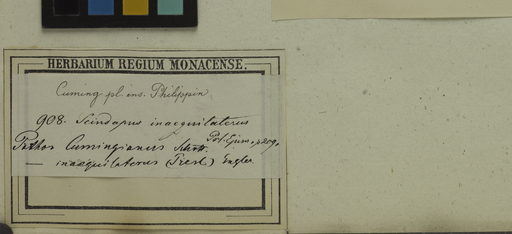 HERBARIUM REGIUM MONACENSE.
Cuming pl. ins. Philippin.
908. Scindapsus inaequilaterus
Pothos Cumingianus Schott.
— inaequilaterus (Presl) Engler